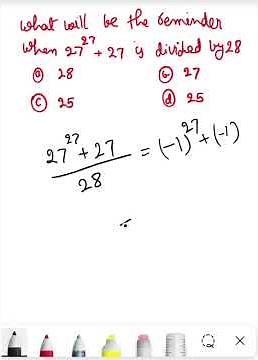 what will be the reminder
when 27²⁷ + 27 is divided by 28
ⓐ 28 ⓑ 27
ⓒ 25 ⓓ 25
27²⁷ + 27 / 28 = (-1)²⁷ + (-1)
=